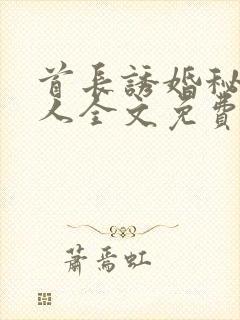 首長誘婚秘
人全文免費
蕭焉虹